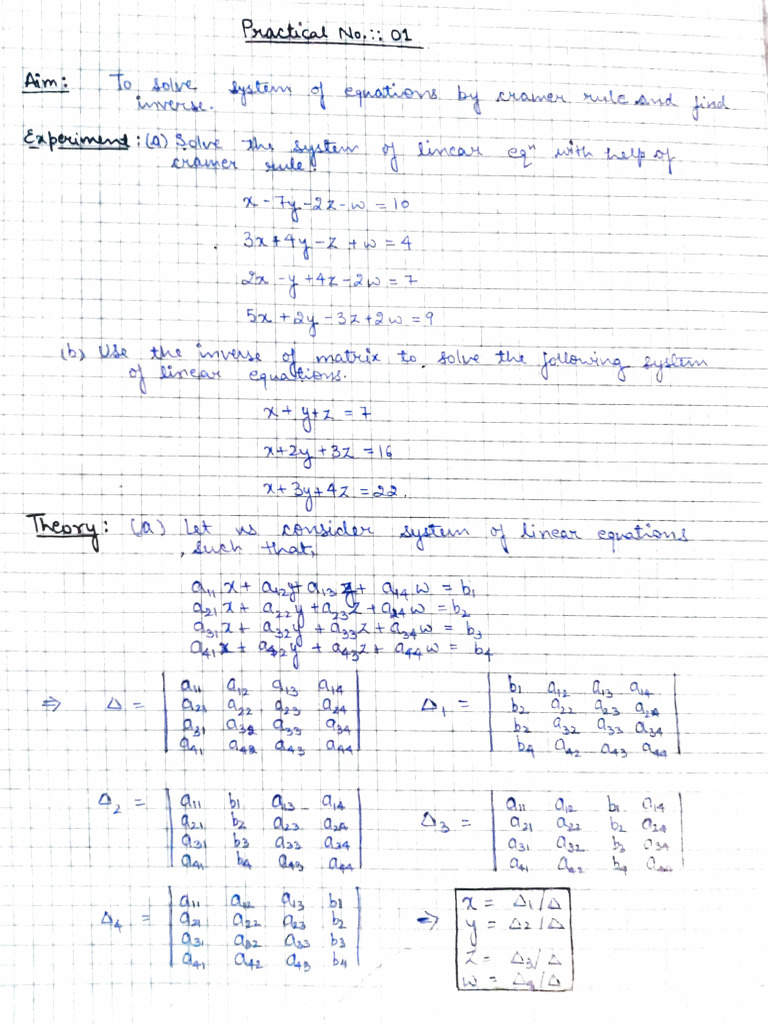 Practical No.:: 01
Aim: To solve system of equations by cramer rule and find
inverse.
Experiment: (a) Solve the system of linear eqⁿ with help of
cramer rule!
x - 7y - 2z - w = 10
3x + 4y - z + w = 4
2x - y + 4z - 2w = 7
5x + 2y - 3z + 2w = 9
(b) Use the inverse of matrix to solve the following system
of linear equations.
x + y + z = 7
x + 2y + 3z = 16
x + 3y + 4z = 22.
Theory: (a) Let us consider system of linear equations
, such that,
a₁₁x + a₁₂y + a₁₃z + a₁₄w = b₁
a₂₁x + a₂₂y + a₂₃z + a₂₄w = b₂
a₃₁x + a₃₂y + a₃₃z + a₃₄w = b₃
a₄₁x + a₄₂y + a₄₃z + a₄₄w = b₄
⇒ Δ = | a₁₁ a₁₂ a₁₃ a₁₄ |
| a₂₁ a₂₂ a₂₃ a₂₄ |
| a₃₁ a₃₂ a₃₃ a₃₄ |
| a₄₁ a₄₂ a₄₃ a₄₄ |
Δ₁ = | b₁ a₁₂ a₁₃ a₁₄ |
| b₂ a₂₂ a₂₃ a₂₄ |
| b₂ a₃₂ a₃₃ a₃₄ |
| b₄ a₄₂ a₄₃ a₄₄ |
Δ₂ = | a₁₁ b₁ a₁₃ a₁₄ |
| a₂₁ b₂ a₂₃ a₂₄ |
| a₃₁ b₃ a₃₃ a₃₄ |
| a₄₁ b₄ a₄₃ a₄₄ |
Δ₃ = | a₁₁ a₁₂ b₁ a₁₄ |
| a₂₁ a₂₂ b₂ a₂₄ |
| a₃₁ a₃₂ b₃ a₃₄ |
| a₄₁ a₄₂ b₄ a₄₄ |
Δ₄ = | a₁₁ a₁₂ a₁₃ b₁ |
| a₂₁ a₂₂ a₂₃ b₂ |
| a₃₁ a₃₂ a₃₃ b₃ |
| a₄₁ a₄₂ a₄₃ b₄ |
⇒ x = Δ₁/Δ
y = Δ₂/Δ
z = Δ₃/Δ
w = Δ₄/Δ